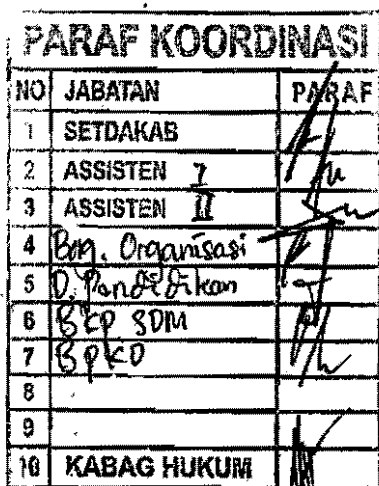 PARAF KOORDINASI
NO JABATAN PARAF
1 SETDAKAB
2 ASSISTEN I
3 ASSISTEN II
4 Bag. Organisasi
5 D. Pendidikan
6 BKP SDM
7 BPKD
8
9
10 KABAG HUKUM